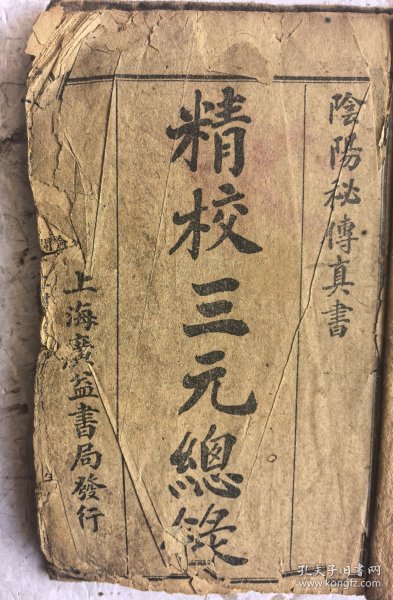 陰陽秘傳真書
精校三元總錄
上海廣益書局發行
孔夫子旧书网
www.kongfz.com